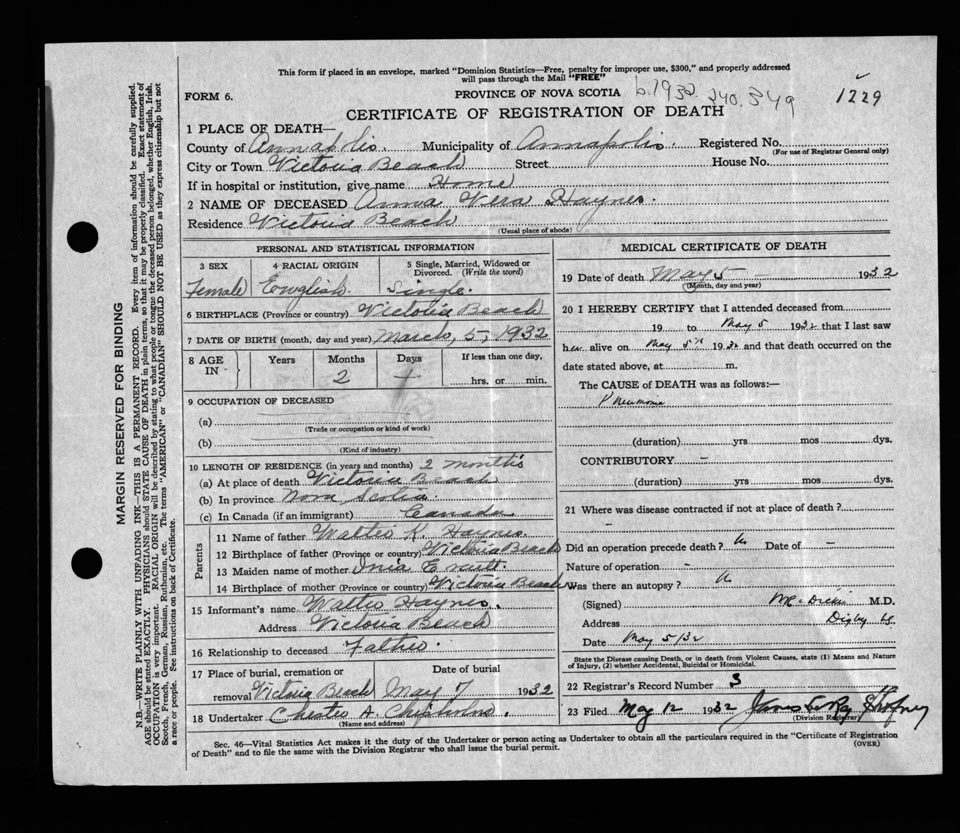 This form if placed in an envelope, marked "Dominion Statistics—Free, penalty for improper use, $300," and properly addressed
will pass through the Mail "FREE"
FORM 6.
PROVINCE OF NOVA SCOTIA b.1932. 240.549 1229
CERTIFICATE OF REGISTRATION OF DEATH
1 PLACE OF DEATH—
County of Annapolis. Municipality of Annapolis. Registered No.
(For use of Registrar General only)
City or Town Victoria Beach Street House No.
If in hospital or institution, give name Home
2 NAME OF DECEASED Anna Vera Haynes.
Residence Victoria Beach
(Usual place of abode)
PERSONAL AND STATISTICAL INFORMATION
3 SEX 4 RACIAL ORIGIN 5 Single, Married, Widowed or
Divorced. (Write the word)
Female English. Single.
6 BIRTHPLACE (Province or country) Victoria Beach
7 DATE OF BIRTH (month, day and year) March, 5, 1932
8 AGE IN Years Months Days If less than one day,
2 hrs. or min.
9 OCCUPATION OF DECEASED
(a)
(Trade or occupation or kind of work)
(b)
(Kind of industry)
10 LENGTH OF RESIDENCE (in years and months) 2 months
(a) At place of death Victoria Beach
(b) In province Nova Scotia.
(c) In Canada (if an immigrant) Canada.
Parents
11 Name of father Walter K. Haynes.
12 Birthplace of father (Province or country) Victoria Beach
13 Maiden name of mother
14 Birthplace of mother (Province or country) Victoria Beach
15 Informant's name Walter Haynes.
Address Victoria Beach
16 Relationship to deceased Father.
17 Place of burial, cremation or Date of burial
removal Victoria Beach May 7 1932
18 Undertaker Chester A. Chisholm.
(Name and address)
MEDICAL CERTIFICATE OF DEATH
19 Date of death May 5 1932
(Month, day and year)
20 I HEREBY CERTIFY that I attended deceased from
19 to May 5 1932 that I last saw
her alive on May 5th 1932 and that death occurred on the
date stated above, at m.
The CAUSE of DEATH was as follows:—
Pneumonia
(duration) yrs mos dys.
CONTRIBUTORY –
(duration) yrs mos dys.
21 Where was disease contracted if not at place of death?
–
Did an operation precede death? Date of –
Nature of operation –
Was there an autopsy?
(Signed) M.D.
Address Digby
Date May 5/32
State the Disease causing Death, or in death from Violent Causes, state (1) Means and Nature
of Injury, (2) whether Accidental, Suicidal or Homicidal.
22 Registrar's Record Number 3
23 Filed May 12 1932
(Division Registrar)
Sec. 46—Vital Statistics Act makes it the duty of the Undertaker or person acting as Undertaker to obtain all the particulars required in the "Certificate of Registration
of Death" and to file the same with the Division Registrar who shall issue the burial permit. (OVER)
MARGIN RESERVED FOR BINDING
N.B.—WRITE PLAINLY WITH UNFADING INK—THIS IS A PERMANENT RECORD. Every item of information should be carefully supplied.
AGE should be stated EXACTLY. PHYSICIANS should STATE CAUSE OF DEATH in plain terms, so that it may be properly classified. Exact statement of
OCCUPATION is very important. RACIAL ORIGIN will be described by stating to what people or tongue the deceased person belonged, whether English, Irish,
Scotch, French, German, Russian, Ruthenian, etc. The terms "AMERICAN" or "CANADIAN" SHOULD NOT BE USED as they express citizenship but not
a race or people. See instructions on back of Certificate.